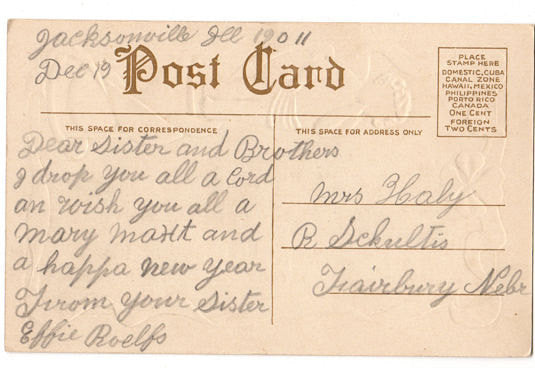 Jacksonville Ill 19011
Dec 19
Post Card
PLACE
STAMP HERE
DOMESTIC, CUBA
CANAL ZONE
HAWAII, MEXICO
PHILIPPINES
PORTO RICO
CANADA
ONE CENT
FOREIGN
TWO CENTS
THIS SPACE FOR CORRESPONDENCE
Dear Sister and Brothers
I drop you all a Cord
an wish you all a
mary and
a happa new year
From your Sister
Effie Roelfs
THIS SPACE FOR ADDRESS ONLY
Mrs Haly
R Schultis
Fairbury Nebr